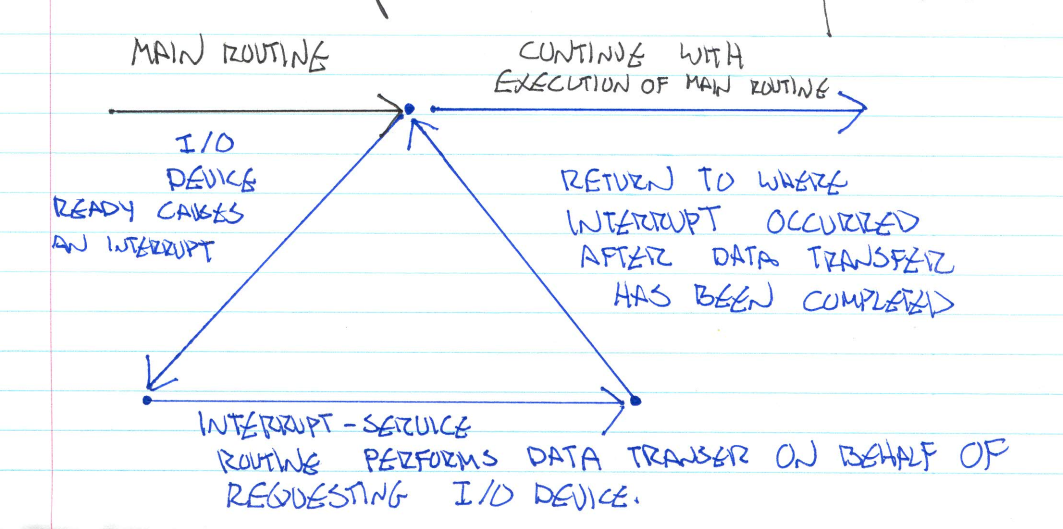 MAIN ROUTINE
CONTINUE WITH
EXECUTION OF MAIN ROUTINE
I/O
DEVICE
READY CAUSES
AN INTERRUPT
RETURN TO WHERE
INTERRUPT OCCURRED
AFTER DATA TRANSFER
HAS BEEN COMPLETED
INTERRUPT-SERVICE
ROUTINE PERFORMS DATA TRANSER ON BEHALF OF
REQUESTING I/O DEVICE.